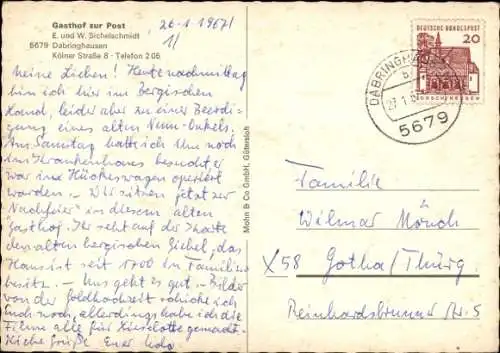 Gasthof zur Post
E. und W. Sichelschmidt
5679 Dabringhausen
Kölner Straße 8 - Telefon 2 06
26-1-1967
Meine Lieben! Heute nachmittag
bin ich hier im Bergischen
Land, leider aber zu einer Beerdi-
gung eines alten Onkels.
Am Samstag hatte ich ihn noch
im Krankenhaus besucht, er
war am operiert
worden. - Wir sitzen jetzt zur
"Nachfeier" in diesem alten
Gasthof. Ihr seht auf der Karte
den alten bergischen Giebel, das
Haus ist seit 1700 im Familien-
besitz. - Uns geht es gut. - Bilder
von der Goldhochzeit schicke ich
Euch noch, allerdings habe ich die
Filme alle für Lieselotte gemacht.
Viele Grüße Euer Udo
Mohn & Co GmbH, Gütersloh
DEUTSCHE BUNDESPOST
20
LORSCH/HESSEN
DABRINGHAUSEN
b
27.1.
5679
Familie
Wilmar Mönch
X 58 Gotha/Thürg
Reinhardsbrunner Str. 5